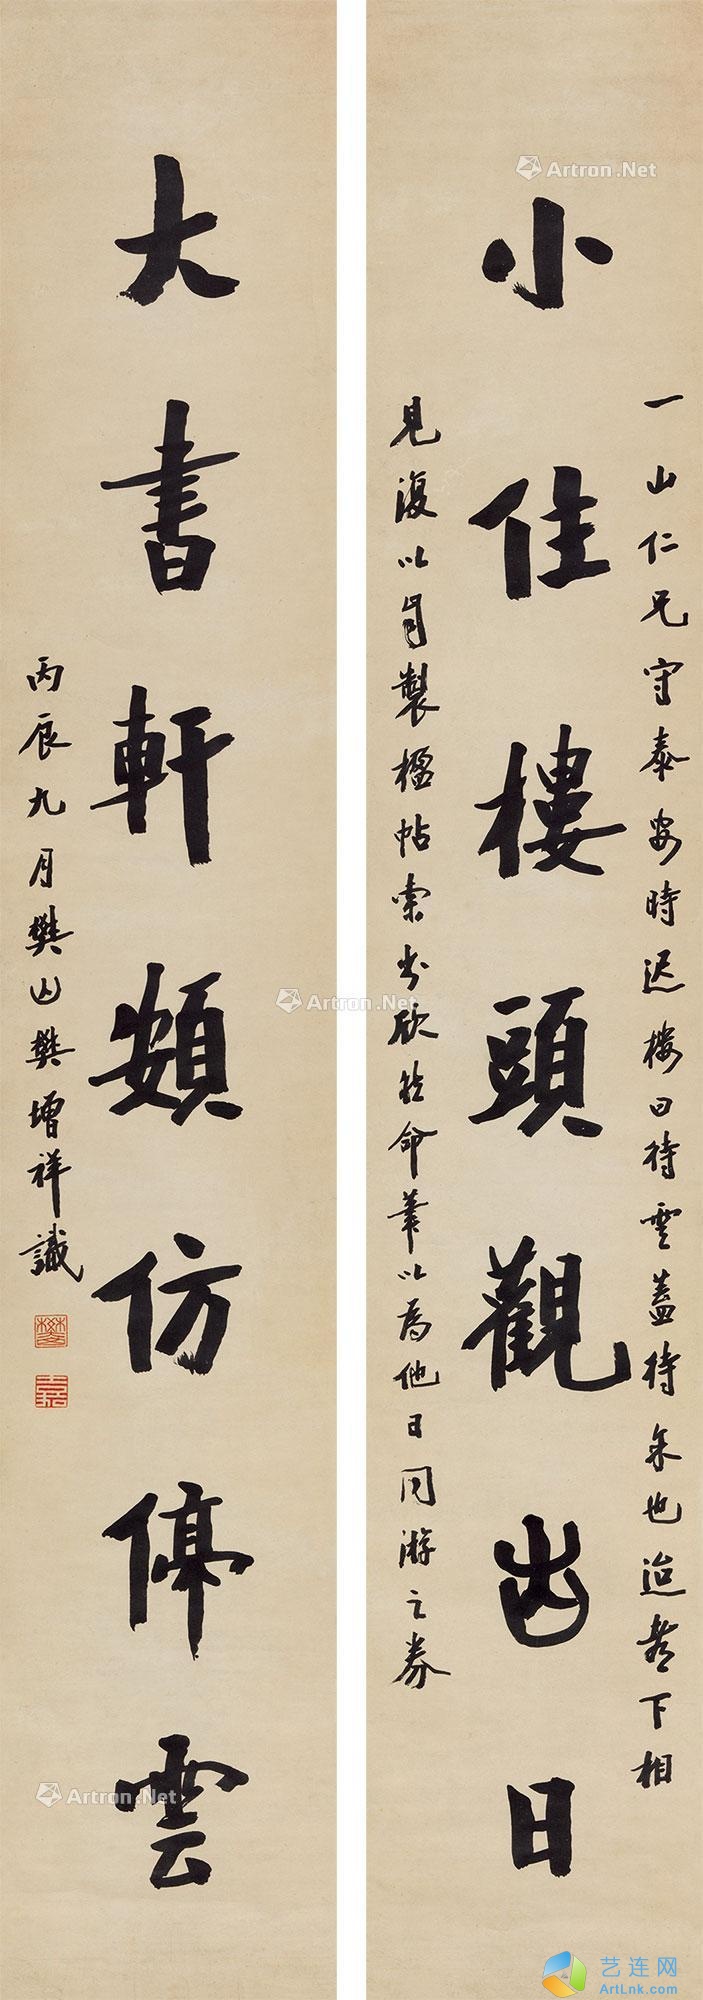 一山仁兄守泰安時起樓曰待雲蓋待余也迨都下相
小住樓頭觀出日
見復以自製楹帖索书欣然命筆以為他日同游之券
大書軒額仿停雲
丙辰九月樊山樊增祥識
Artron.Net
Artron.Net
Artron.Net
艺连网
ArtLnk.com